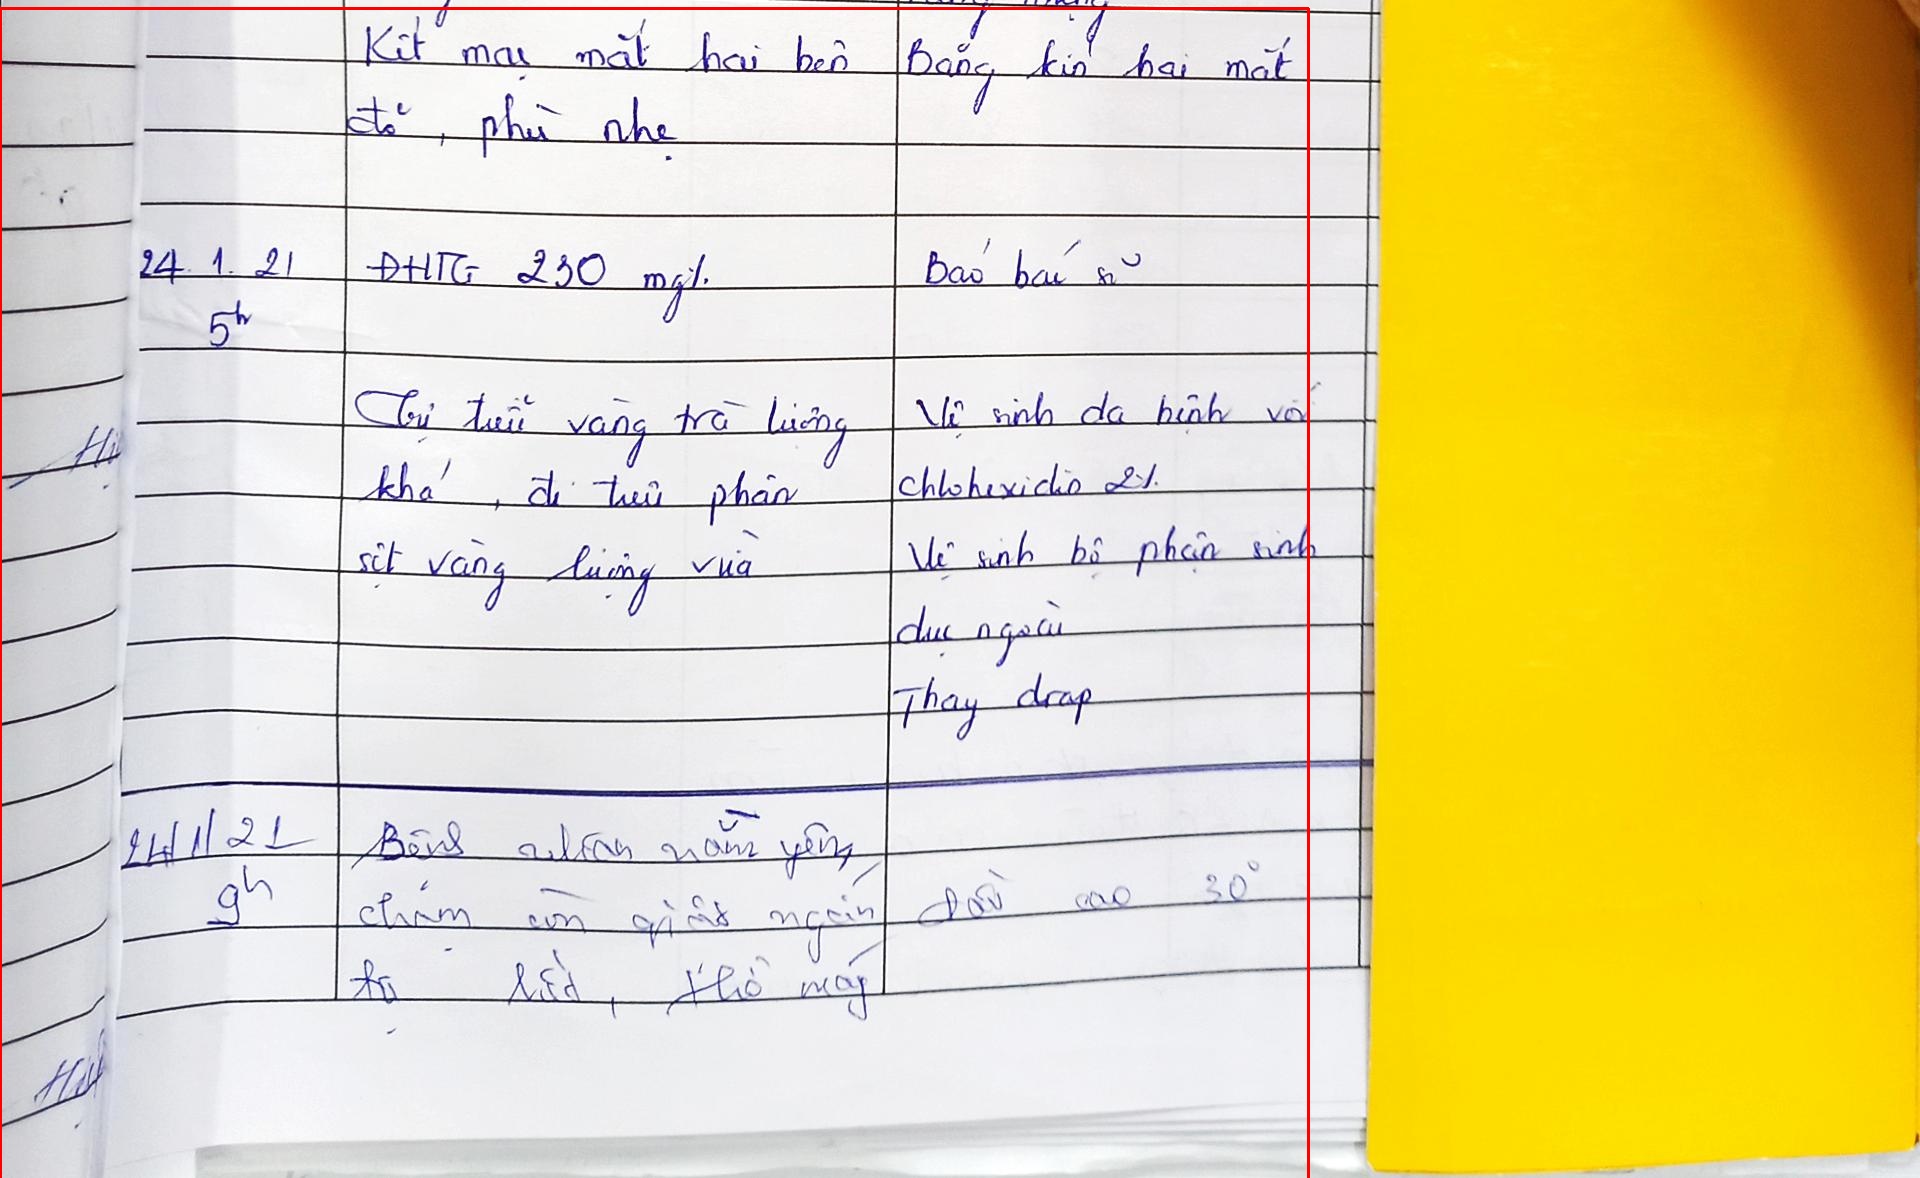 Kết mạc mắt hai bên
đỏ, phù nhẹ
Băng kín hai mắt
24.1.21
5h
ĐHTG 230 mg%
Báo bác sĩ
Tự tiểu vàng trà lượng
khá, đi tiêu phân
sệt vàng lượng vừa
Vệ sinh da bệnh với
chlohexidin 2%
Vệ sinh bộ phận sinh
dục ngoài
Thay drap
24/1/21
9h
Bệnh nhân nằm yên,
thỉnh còn giật ngón
thở máy
Đầu cao 30°